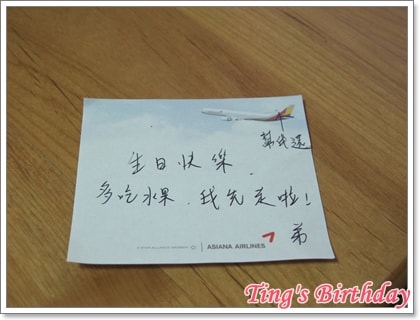 幫代送
生日快樂.
多吃水果.我先走啦!
弟
A STAR ALLIANCE MEMBER
ASIANA AIRLINES
Ting's Birthday